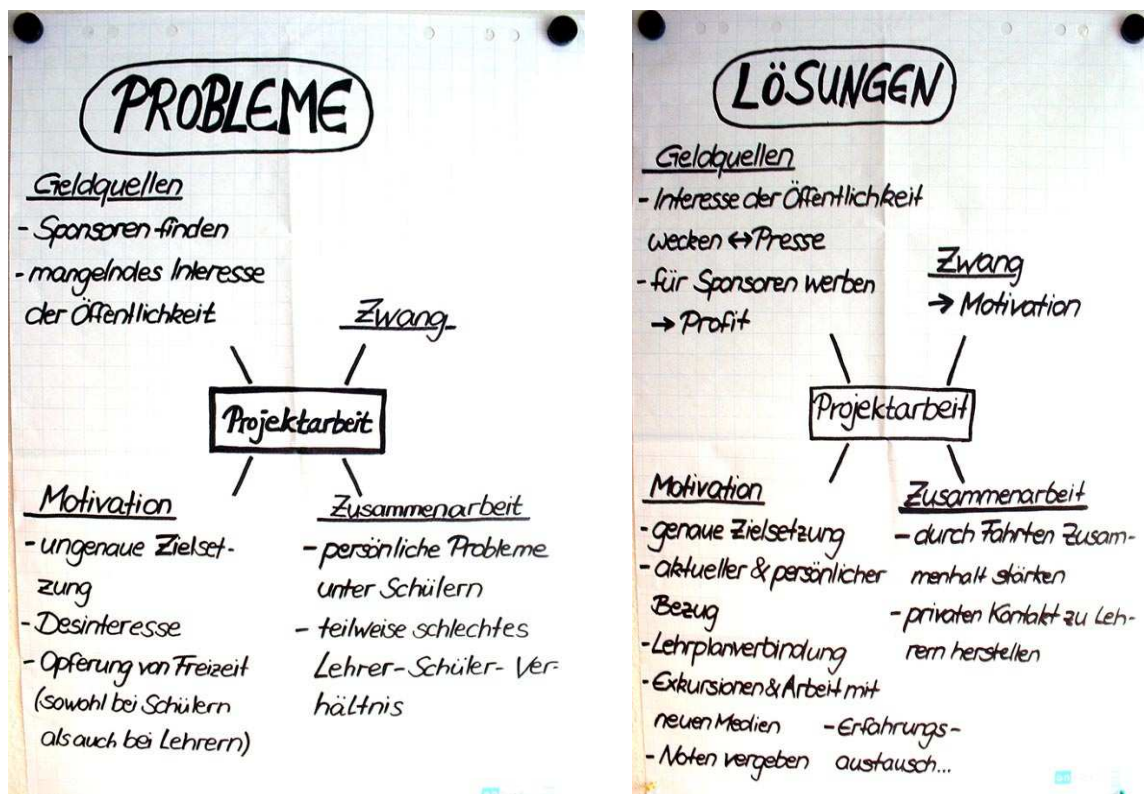 PROBLEME
Geldquellen
- Sponsoren finden
- mangelndes Interesse
der Öffentlichkeit
Zwang
Projektarbeit
Motivation
- ungenaue Zielset-
zung
- Desinteresse
- Opferung von Freizeit
(sowohl bei Schülern
als auch bei Lehrern)
Zusammenarbeit
- persönliche Probleme
unter Schülern
- teilweise schlechtes
Lehrer-Schüler-Ver-
hältnis
LÖSUNGEN
Geldquellen
- Interesse der Öffentlichkeit
wecken ↔ Presse
- für Sponsoren werben
→ Profit
Zwang
→ Motivation
Projektarbeit
Motivation
- genaue Zielsetzung
- aktueller & persönlicher
Bezug
- Lehrplanverbindung
- Exkursionen & Arbeit mit
neuen Medien
- Noten vergeben
- Erfahrungs-
austausch...
Zusammenarbeit
- durch Fahrten Zusam-
menhalt stärken
- privaten Kontakt zu Leh-
rern herstellen